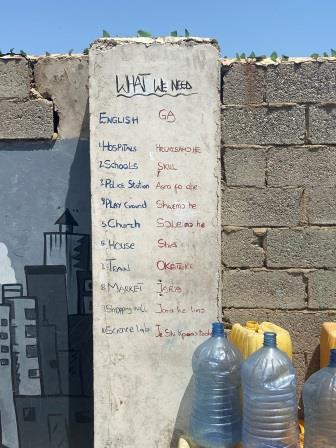 WHAT WE NEED
ENGLISH GA
1. HOSPITALS HELATSAMO HE
2. SCHOOLS SKUL
3. Police Station Asrafo ahe
4. PLAY GROUND Shwemo he
5. Church Sɔlemɔ he
6. House Shia
7. TRAIN OKETEKE
8. MARKET Jara
9. Shopping mall Jara he
10. Science Lab